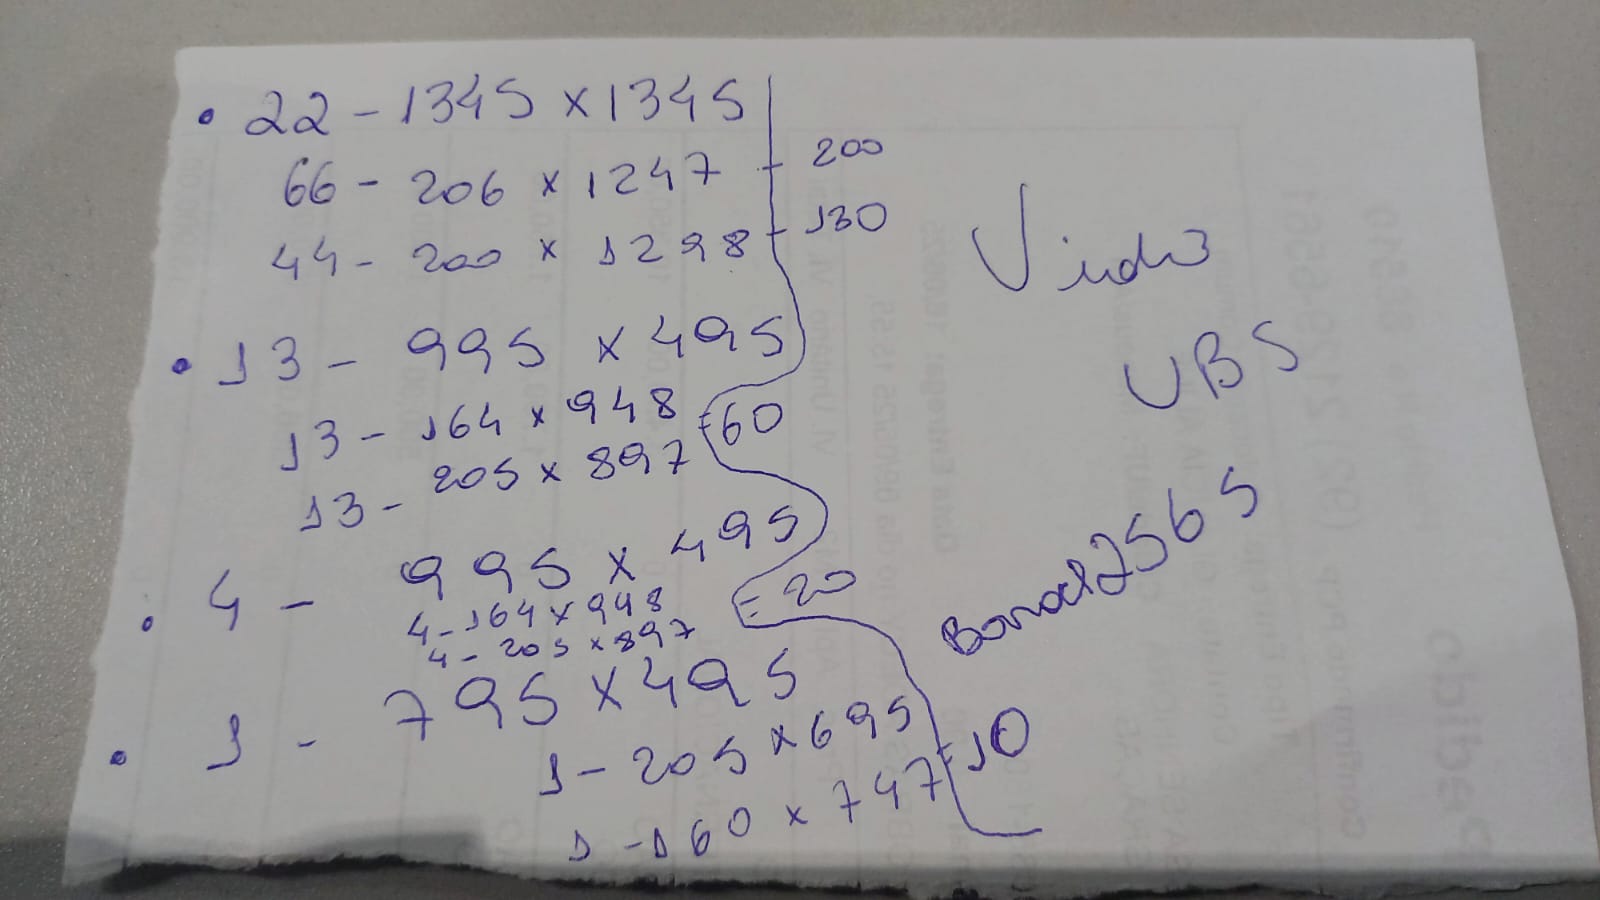 • 22 - 1345 x 1345
66 - 206 x 1247 - 200
44 - 200 x 1298 - 130
• 13 - 995 x 495
13 - 164 x 948 = 60
13 - 205 x 897
• 4 - 995 x 495
4 - 164 x 948 = 20
4 - 205 x 897
• 1 - 795 x 495
1 - 205 x 695
1 - 160 x 747 = 10
UBS
2565